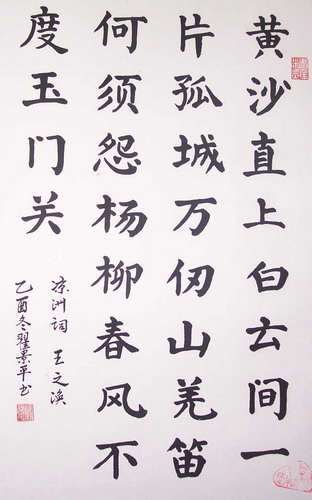 黄沙直上白云间一
片孤城万仞山羌笛
何须怨杨柳春风不
度玉门关
凉州词 王之涣
乙酉冬翟景平书